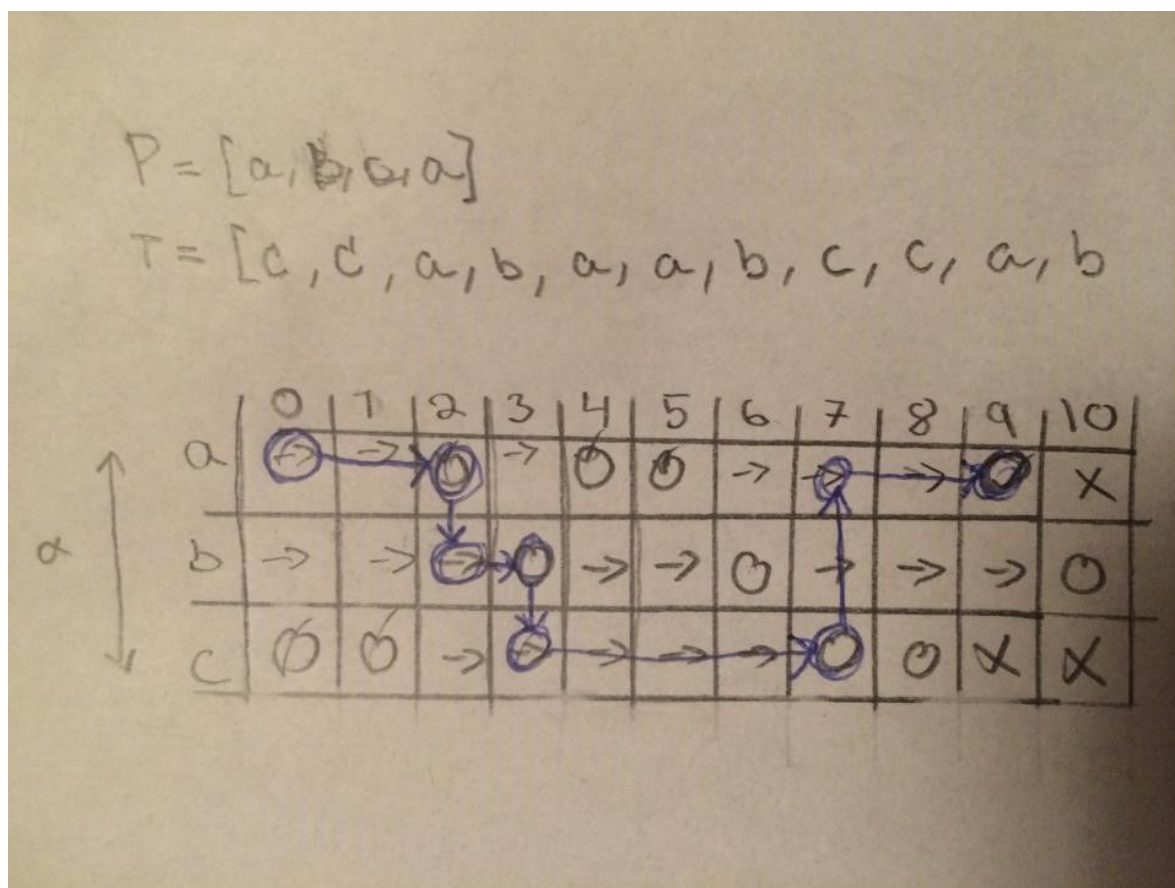 P = [a, b, c, a]
T = [c, c, a, b, a, a, b, c, c, a, b
0 1 2 3 4 5 6 7 8 9 10
a → → O → O O → → → O X
b → → → O → → O → → → O
α
c O O → → → → → O O X X